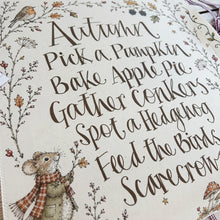 Autumn
Pick a Pumpkin
Bake Apple Pie
Gather Conkers
Spot a Hedgehog
Feed the Birds
Scarecrow